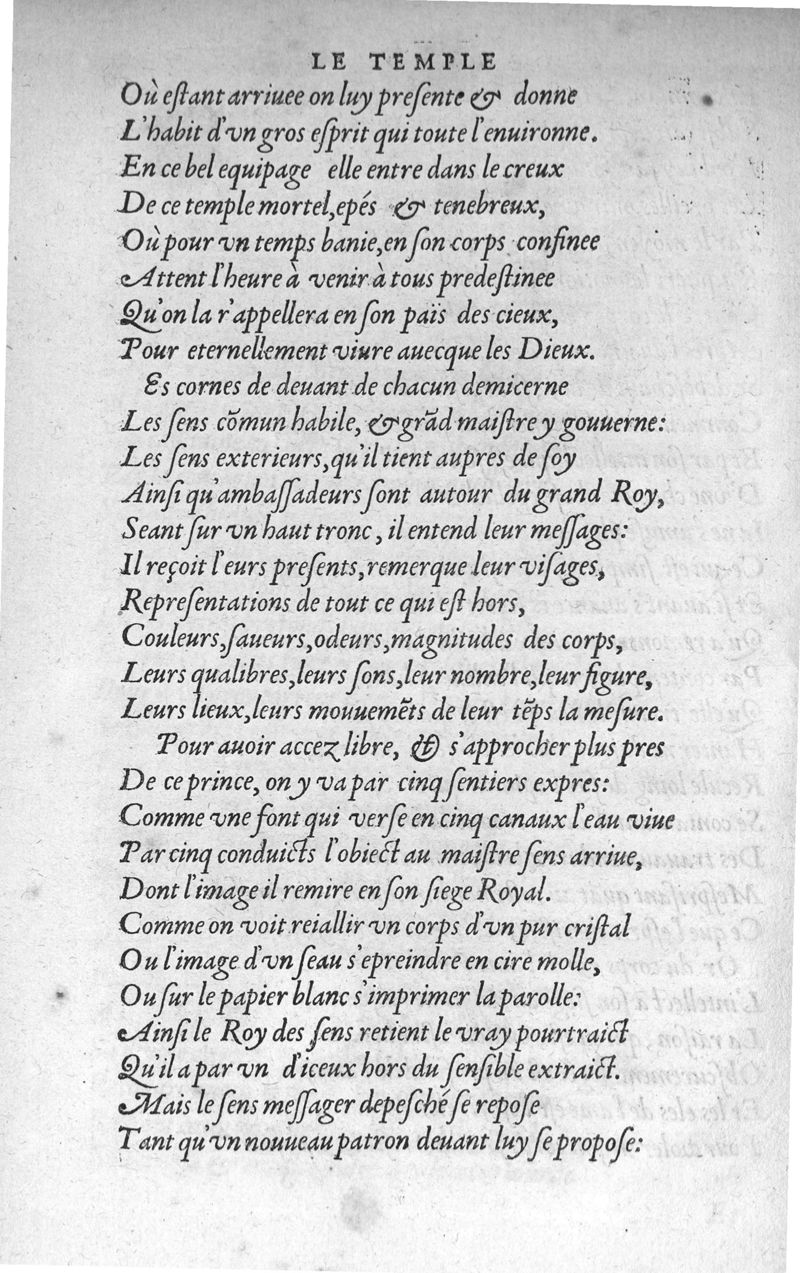 LE TEMPLE
Où eſtant arriuee on luy preſente & donne
L'habit d'vn gros eſprit qui toute l'enuironne.
En ce bel equipage elle entre dans le creux
De ce temple mortel, epés & tenebreux,
Où pour vn temps banie, en ſon corps confinee
Attent l'heure à venir à tous predeſtinee
Qu'on la r'appellera en ſon païs des cieux,
Pour eternellement viure auecque les Dieux.
Es cornes de deuant de chacun demicerne
Les ſens cõmun habile, & grãd maiſtre y gouuerne:
Les ſens exterieurs, qu'il tient aupres de ſoy
Ainſi qu'ambaſſadeurs ſont autour du grand Roy,
Seant ſur vn haut tronc, il entend leur meſſages:
Il reçoit l'eurs preſents, remarque leur viſages,
Repreſentations de tout ce qui eſt hors,
Couleurs, ſaueurs, odeurs, magnitudes des corps,
Leurs qualibres, leurs ſons, leur nombre, leur figure,
Leurs lieux, leurs mouuemẽts de leur tẽps la meſure.
Pour auoir accez libre, & s'approcher plus pres
De ce prince, on y va par cinq ſentiers expres:
Comme vne font qui verſe en cinq canaux l'eau viue
Par cinq conduicts l'obiect au maiſtre ſens arriue,
Dont l'image il remire en ſon ſiege Royal.
Comme on voit reiallir vn corps d'vn pur criſtal
Ou l'image d'vn ſeau s'epreindre en cire molle,
Ou ſur le papier blanc s'imprimer la parolle:
Ainſi le Roy des ſens retient le vray pourtraict
Qu'il a par vn d'iceux hors du ſenſible extraict.
Mais le ſens meſſager depeſché ſe repoſe
Tant qu'vn nouueau patron deuant luy ſe propoſe: